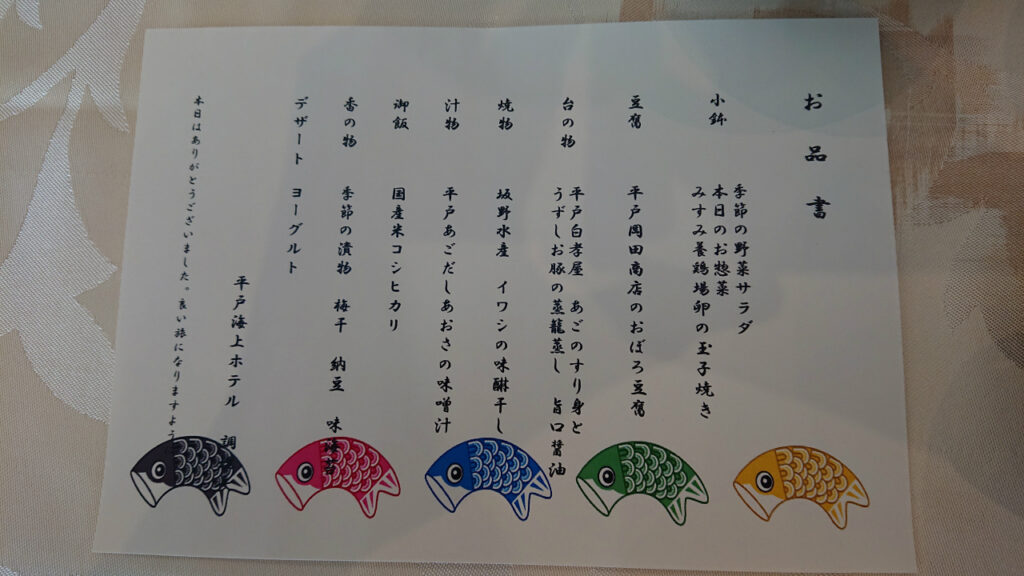 お品書
小鉢
季節の野菜サラダ
本日のお惣菜
みすみ養鶏場卵の玉子焼き
豆腐 平戸岡田商店のおぼろ豆腐
台の物
平戸白孝屋 あごのすり身と
うずしお豚の蒸籠蒸し 旨口醤油
焼物 坂野水産 イワシの味醂干し
汁物 平戸あごだしあおさの味噌汁
御飯 国産米コシヒカリ
香の物 季節の漬物 梅干 納豆 味海苔
デザート ヨーグルト
平戸海上ホテル 調
本日はありがとうございました。良い旅になりますよう